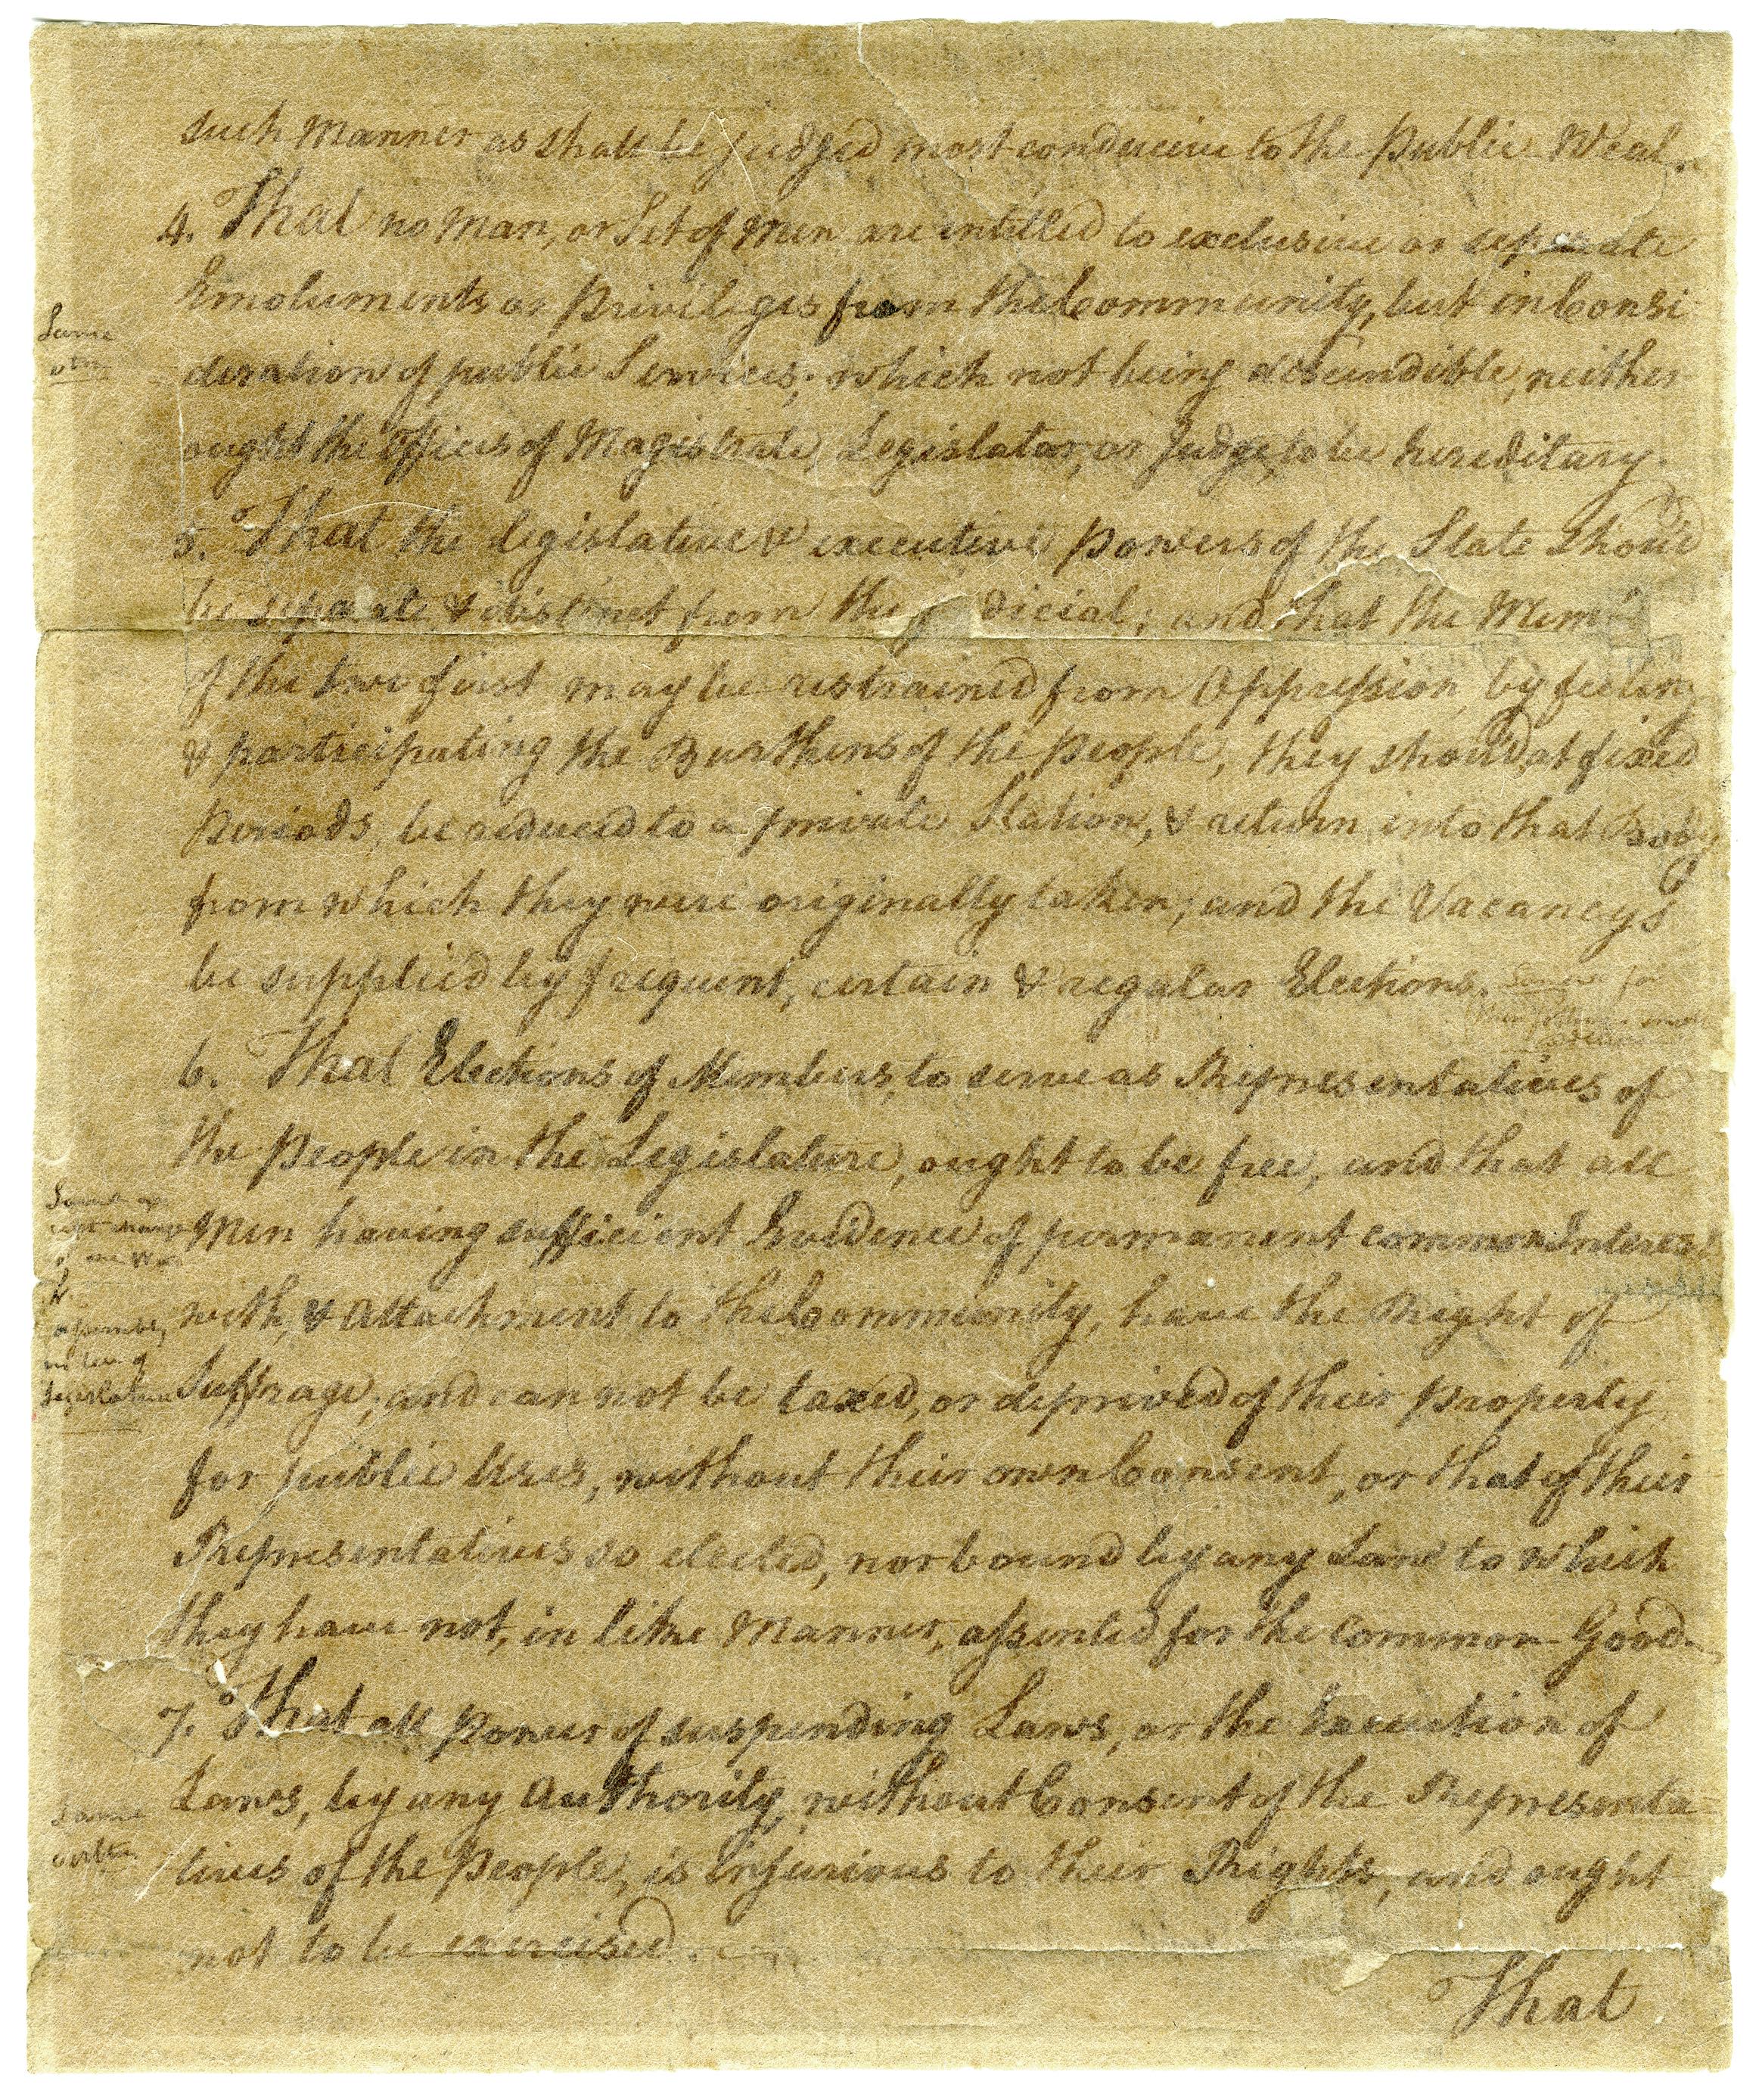 such Manner as shall be judged most conducive to the Public Weal.
4. That no Man, or Set of Men are intitled to exclusive or seperate
Emoluments or Privileges from the Community, but in Consi-
deration of public Services; which not being descendible, neither
ought the Offices of Magistrate, Legislator, or Judge, to be hereditary.
5. That the legislative & executive Powers of the State Shoud
be seperate & distinct from the ju dicial; and that the Mem
of the two first may be restrained from Oppression, by feeling
& participating the Burthens of the People, they shoud, at fixed
Periods, be reduced to a private Station, & return into that Body
from which they were originally taken; and the Vacancys
be supplied by frequent, certain & regular Elections.
6. That Elections of Members, to serve as Representatives of
the People in the Legislature, ought to be free, and that all
Men having sufficient Evidence of permanent common Interest
with, & Attachment to the Community, have the Right of
Suffrage; and can not be taxed, or deprived of their Property
for public Uses, without their own Consent, or that of their
Representatives so elected, nor bound by any Law to which
they have not, in like Manner, assented for the common Good.
7. That all Power of suspending Laws, or the Execution of
Laws, by any Authority, without Consent of the Representa-
tives of the People, is injurious to their Rights, and ought
not to be exercised.
That
Same
Same
Legislature
Same